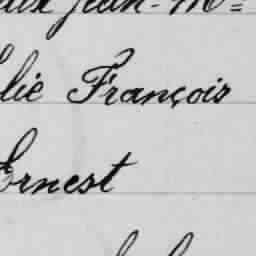 Jean-M
lie François
Ernest